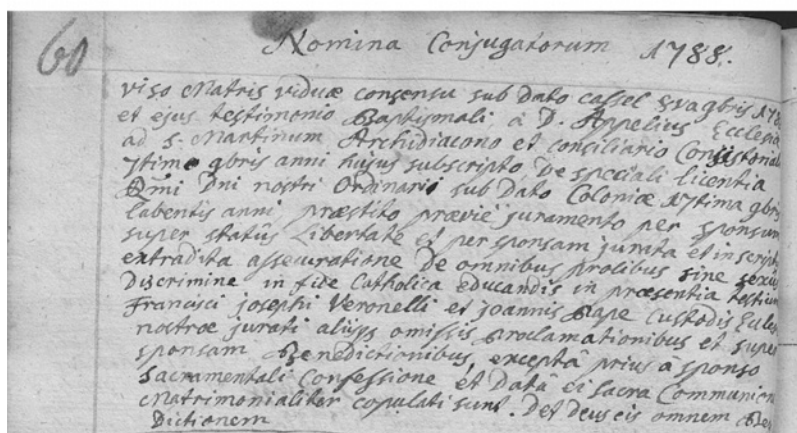 60 Nomina Conjugatorum 1788.
viso Matris viduæ consensu sub Dato Cassel 8va 9bris 178
et ejus testimonio Baptismali, à D. Appelius Ecclesiæ
ad S. Martinum Archidiacono et consiliario Consistoriali
7timo 9bris anni hujus subscripto, De speciali licentia
Dni nostri Ordinarii sub Dato Coloniæ 17tima 9bris
labentis anni, præstito prævie juramento per sponsum
super statûs Libertate et per sponsam jurata et in scriptis
extradita assecuratione De omnibus prolibus sine sexus
Discrimine in fide Catholica educandis in præsentia testium
Francisci josephi Veronelli et joannis Pape Custodis Eccles
nostræ jurati aliisqs omissis Proclamationibus et super
sponsam Benedictionibus, exceptâ prius à sponso
Sacramentali Confessione et Datâ ei Sacra Communion
Matrimonialiter copulati sunt. Det Deus eis omnem Bene
Dictionem